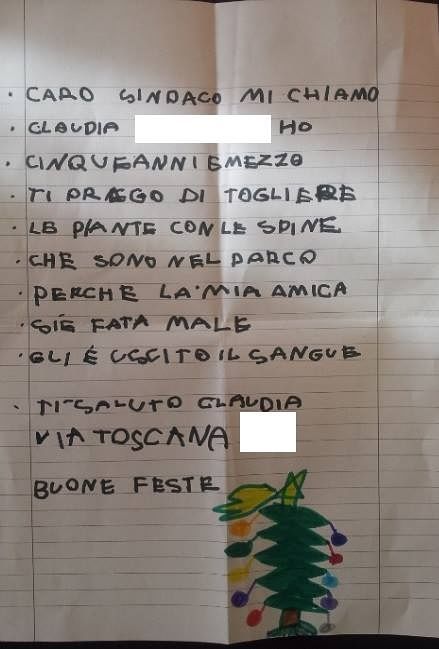 · CARO SINDACO MI CHIAMO
· CLAUDIA HO
· CINQUEANNIEMEZZO
· TI PRAEGO DI TOGLIERE
· LE PIANTE CON LE SPINE
· CHE SONO NEL PARCO
· PERCHE LA MIA AMICA
· SIE FATA MALE
· GLI É USCITO IL SANGUE
· TI SALUTO CLAUDIA
VIA TOSCANA
BUONE FESTE